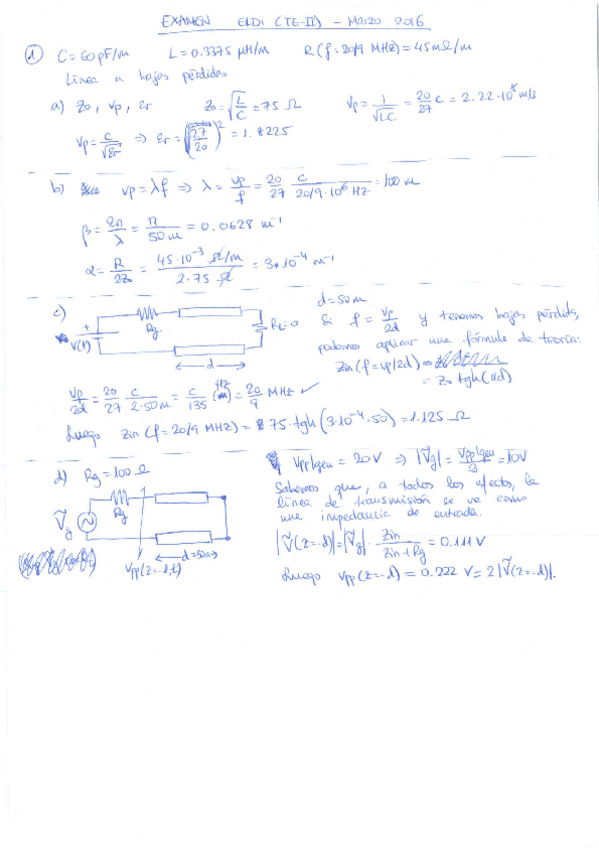 EXAMEN ELDI (T6-II) - Marzo 2016
① C=60pF/m L=0.3375 μH/m R(f=20/9 MHz)=45mΩ/m
Línea n bajas pérdidas
a) Zo, vp, εr Zo=√(L/C)=75 Ω vp=1/√(LC)=20/27 c=2.22·10⁸ m/s
vp=c/√εr ⇒ εr=(27/20)²=1.8225
b) vp=λf ⇒ λ=vp/f=20/27 c/(20/9·10⁶ Hz)=100m
β=2π/λ=π/50m=0.0628 m⁻¹
α=R/2Zo=45·10⁻³ Ω/m/2·75 Ω=3·10⁻⁴ m⁻¹
c) + V(t) Rg RL=0 d
d=50m
Si f=vp/2d y tenemos bajas pérdidas,
podemos aplicar una fórmula de teoría:
Zin(f=vp/2d)=
=Zo tgh(αd)
vp/2d=20/27 c/2·50m=c/135 Hz(m)=20/9 MHz ✓
Luego Zin(f=20/9 MHz)=75·tgh(3·10⁻⁴·50)=1.125 Ω
d) Rg=100Ω
Ṽg Rg d=50m
Vpp(z=-d,t)
Vpp|gen=20V ⇒ |Ṽg|=Vpp|gen/2=10V
Sabemos que, a todos los efectos, la
línea de transmisión se ve como
una impedancia de entrada.
|Ṽ(z=-d)|=|Ṽg|·Zin/(Zin+Rg)=0.111V
Luego Vpp(z=-d)=0.222 V=2|Ṽ(z=-d)|.